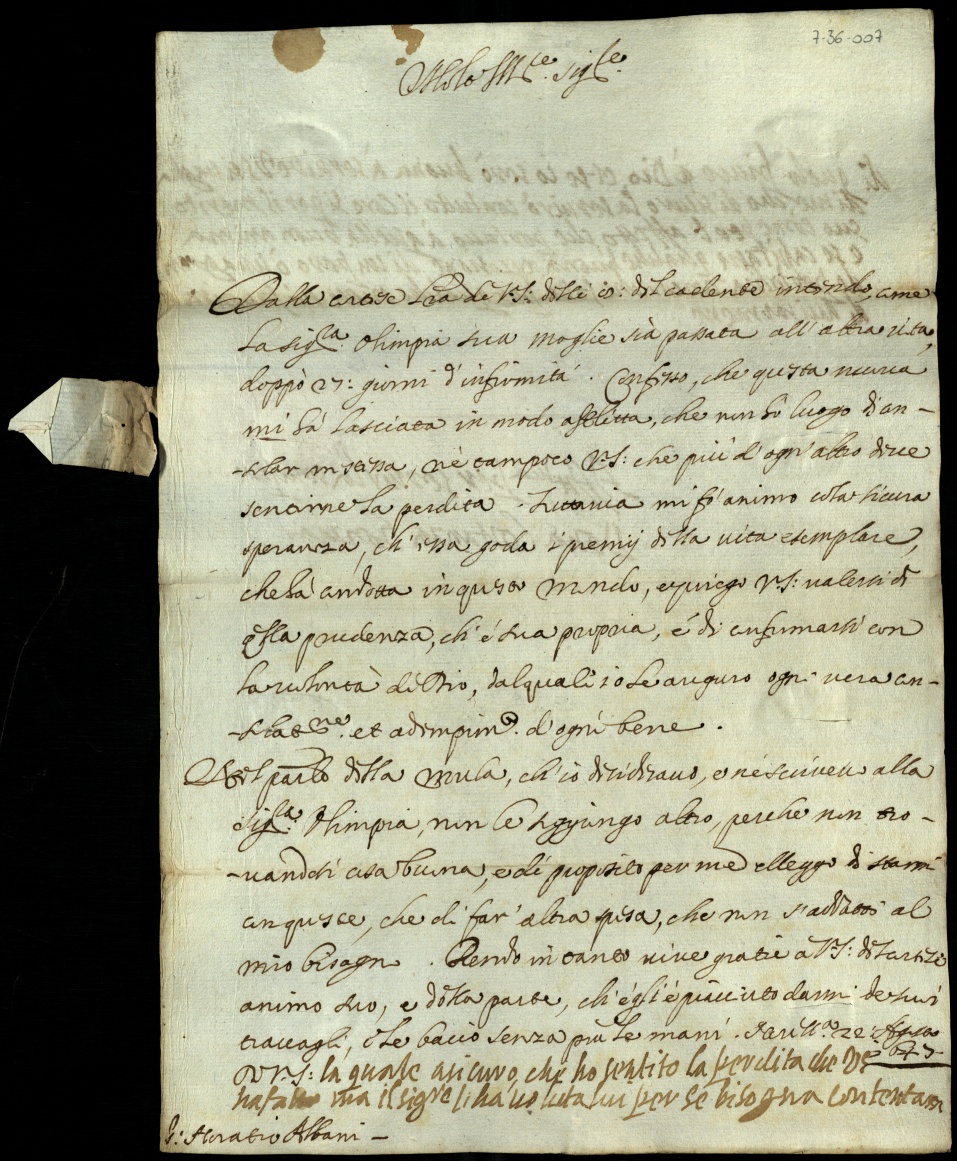 7-36-007
Molto Ill.re Sig.re
Dalla cortese l'ra di V.S: delli 10: del cadente intendo, come
la Sig.ra Olimpia sua moglie sia passata all'altra vita,
doppò 27: giorni d'infirmità. Confesso, che questa nuova
mi hà lasciata in modo afflitta, che non hò luogo di con-
solar me stessa, nè tampoco V.S: che più d'ogn'altro deve
sentirne la perdita. Tuttavia mi fò animo colla sicura
speranza, ch'essa goda i premij della vita esemplare,
che hà condotta in questo mondo, e priego V.S: valersi di
q'lla prudenza, ch'è sua propria, é di confirmarsi con
la volontà di Dio, dal quale io le auguro ogni vera con-
solat.ne et adempim.to d'ogni bene.
Nel part.o della mula, ch'io desideravo, e nè scrivevo alla
Sig.ra Olimpia, non le soggiungo altro, perche non tro-
vandosi cosa buona, e di proposito per me elleggo di starmi
con queste, che di far' altra spesa, che non s'addatti al
mio bisogno. Rendo in tanto vive gratie à V.S: del
animo suo, e della parte, ch'egli è piacciuto darmi de suoi
travagli, è le bacio senza più le mani. 22: Agosto
647
D V.S: la quale asicuro, che ho sentito la perdita che
ha fatto ma il sig.re l'ha voluta lui per se bisogna contentarsi
S: Horatio Albani -